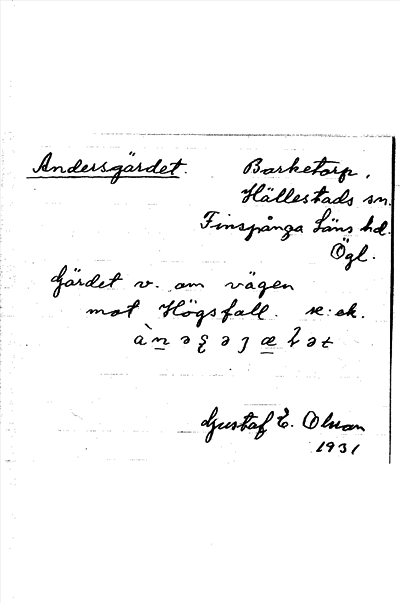 Andersgärdet. Barketorp,
Hällestads sn.
Finspånga Läns hd.
Ögl.
Gärdet v. om vägen
mot Högsfall.
Gustaf E. Olsson
1931